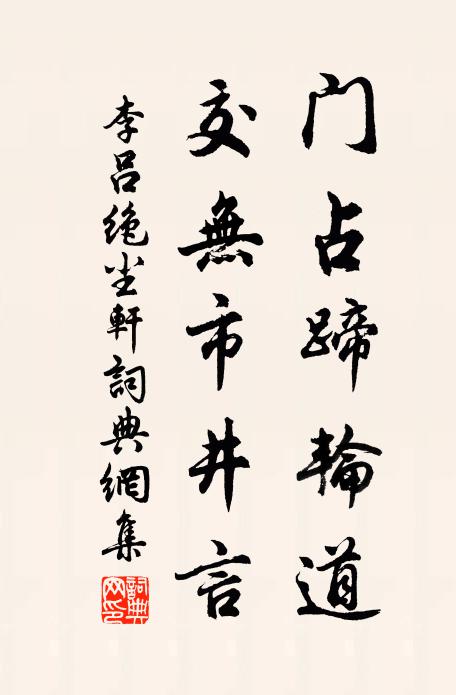 门占蹄輪道
交無市井言
李吕绝尘軒詞典網集
詞典网印